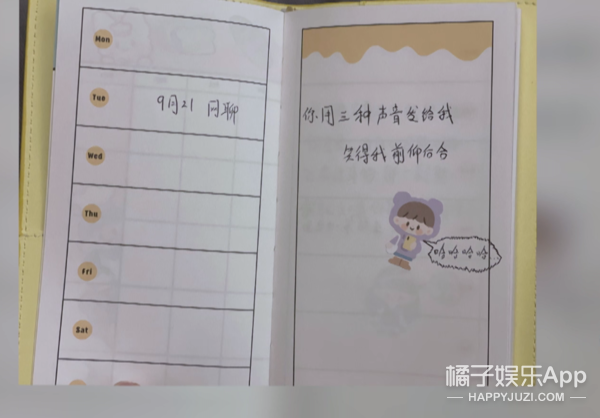 Mon
Tue
9月21 网聊
Wed
Thu
Fri
Sat
你用三种声音发给我
笑得我前仰后合
哈哈哈哈
橘子娱乐App
HAPPYJUZI.COM